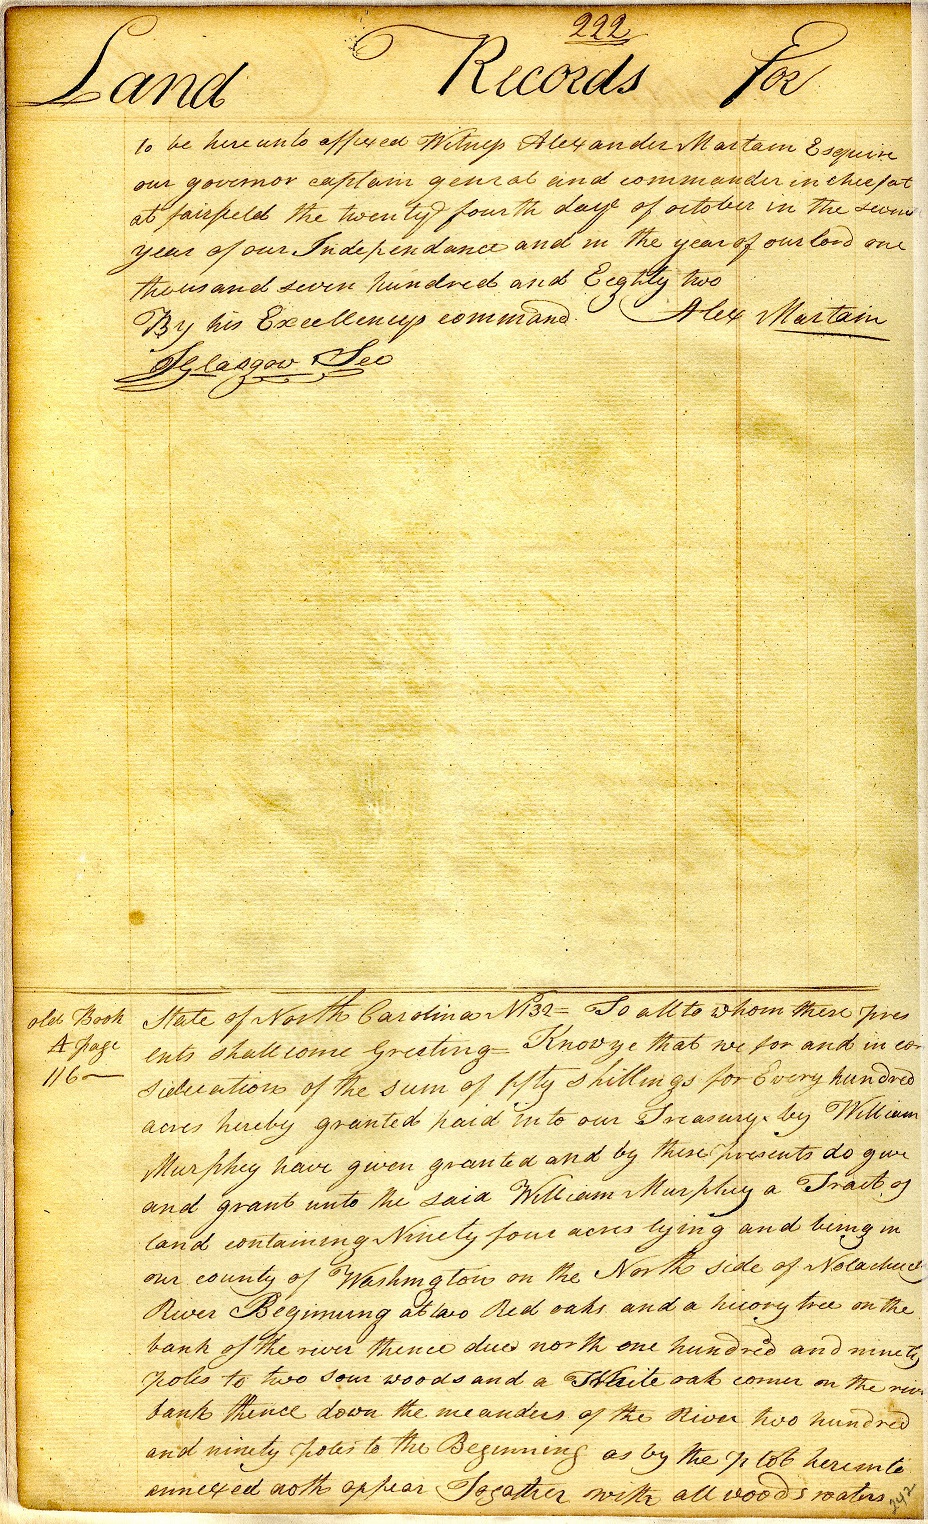 222
Land Records For
to be hereunto affixed Witness Alexander Martain Esquire
our governor captain genral and commander in cheef at
at fairfield the twenty fourth day of october in the
year of our Independance and in the year of our lord one
thousand seven hundred and Eighty two
By his Excellencys command. Alex Martain
JGlasgow Sec
old Book
A page
116
State of North Carolina No 32 = To all to whom these pres
ents shall come Greeting = Know ye that we for and in con
sideration of the sum of fifty shillings for Every hundred
acres hereby granted paid into our Treasury by William
Murphey have given granted and by these presents do give
and grant unto the said William Murphey a Tract of
land containing Ninety four acres lying and being in
our county of Washington on the North side of Nolachucky
River Beginning at two Red oaks and a hicory tree on the
bank of the river thence due north one hundred and ninety
poles to two sour woods and a White oak corner on the river
bank thence down the meanders of the River two hundred
and ninety poles to the Beginning as by the plot hereunto
annexed doth appear Together with all woods waters
242